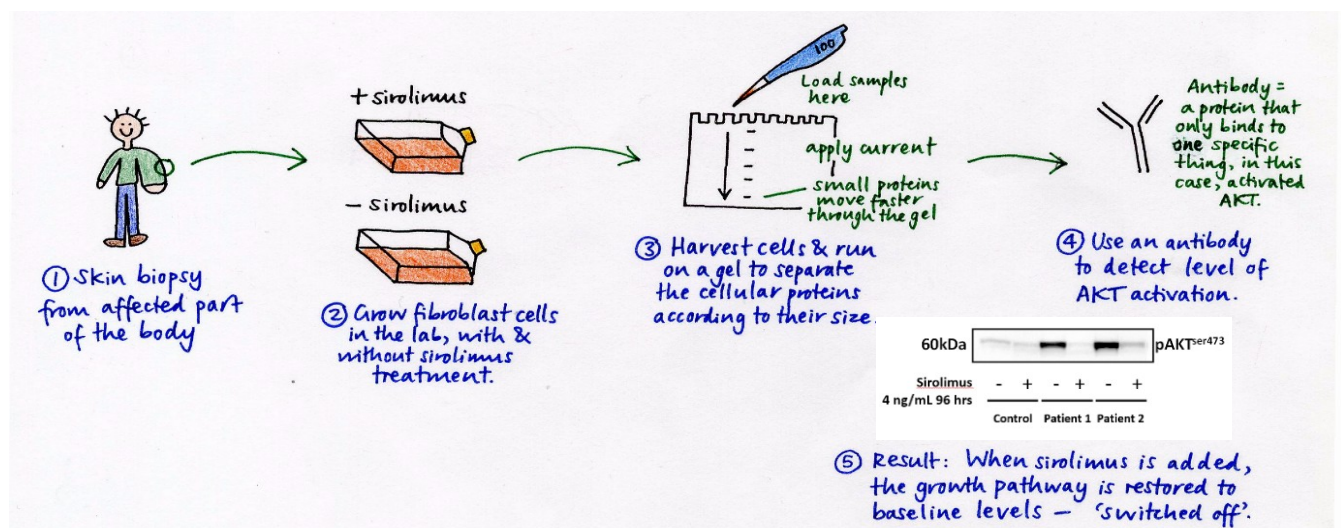 ① Skin biopsy
from affected part
of the body
+ sirolimus
- sirolimus
② Grow fibroblast cells
in the lab, with &
without sirolimus
treatment.
100
Load samples
here
apply current
small proteins
move faster
through the gel
③ Harvest cells & run
on a gel to separate
the cellular proteins
according to their size.
Antibody =
a protein that
only binds to
one specific
thing, in this
case, activated
AKT.
④ Use an antibody
to detect level of
AKT activation.
60kDa pAKTser473
Sirolimus - + - + - +
4 ng/mL 96 hrs
Control Patient 1 Patient 2
⑤ Result: When sirolimus is added,
the growth pathway is restored to
baseline levels - 'switched off'.